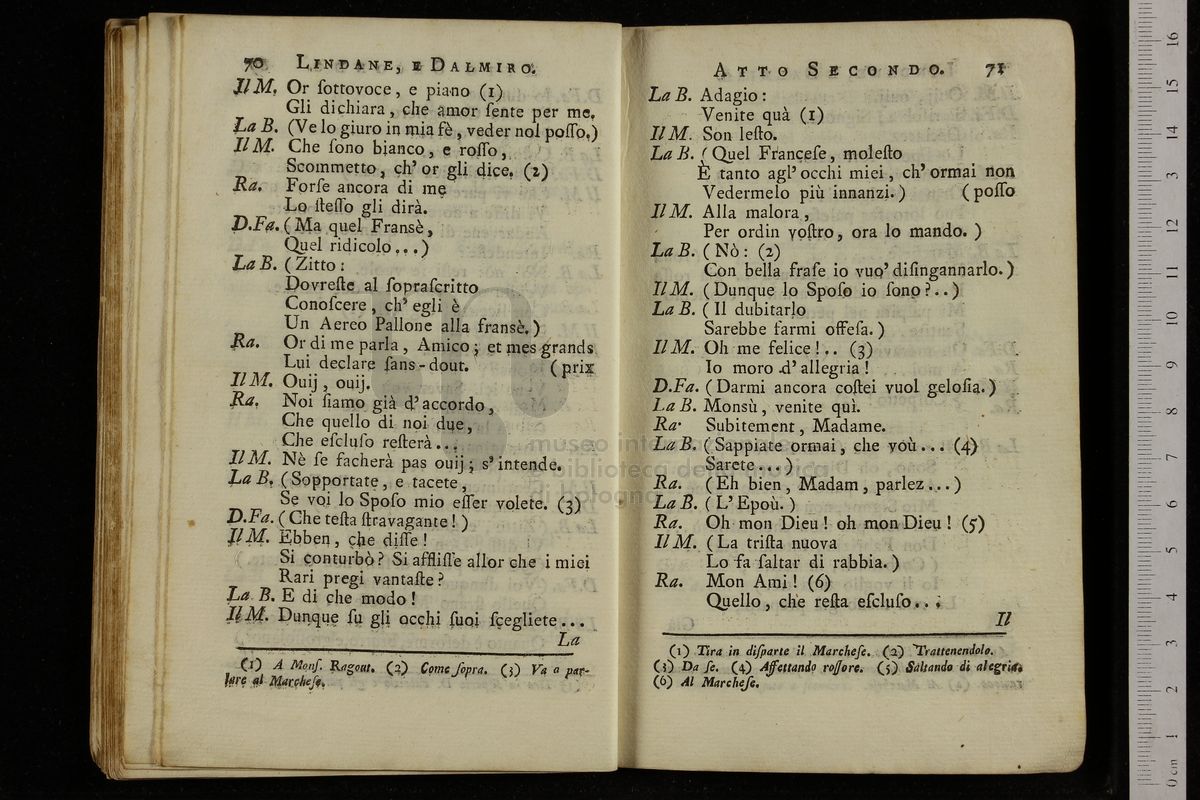 70 LINDANE, E DALMIRO.
Il M. Or ſottovoce, e piano (1)
Gli dichiara, che amor ſente per me.
La B. (Ve lo giuro in mia fè, veder nol poſſo.)
Il M. Che ſono bianco, e roſſo,
Scommetto, ch' or gli dice. (2)
Ra. Forſe ancora di me
Lo ſteſſo gli dirà.
D.Fa. (Ma quel Fransè,
Quel ridicolo...)
La B. (Zitto:
Dovreſte al ſopraſcritto
Conoſcere, ch' egli è
Un Aereo Pallone alla fransè.)
Ra. Or di me parla, Amico; et mes grands
Lui declare ſans-dout. (prix
Il M. Ouij, ouij.
Ra. Noi ſiamo già d' accordo,
Che quello di noi due,
Che eſcluſo reſterà...
Il M. Nè ſe facherà pas ouij; s' intende.
La B. (Sopportate, e tacete,
Se voi lo Spoſo mio eſſer volete. (3)
D.Fa. (Che teſta ſtravagante!)
Il M. Ebben, che diſſe!
Si conturbò? Si affliſſe allor che i miei
Rari pregi vantaſte?
La B. E di che modo!
Il M. Dunque ſu gli occhi ſuoi ſcegliete...
La
(1) A Monſ. Ragout. (2) Come ſopra. (3) Va a par-
lare al Marcheſe.
ATTO SECONDO. 71
La B. Adagio:
Venite quà (1)
Il M. Son leſto.
La B. (Quel Franceſe, moleſto
È tanto agl' occhi miei, ch' ormai non
Vedermelo più innanzi.) (poſſo
Il M. Alla malora,
Per ordin voſtro, ora lo mando.)
La B. (Nò: (2)
Con bella fraſe io vuo' diſingannarlo.)
Il M. (Dunque lo Spoſo io ſono?..)
La B. (Il dubitarlo
Sarebbe farmi offeſa.)
Il M. Oh me felice!.. (3)
Io moro d' allegria!
D.Fa. (Darmi ancora coſtei vuol geloſia.)
La B. Monsù, venite quì.
Ra. Subitement, Madame.
La B. (Sappiate ormai, che voù... (4)
Sarete...)
Ra. (Eh bien, Madam, parlez...)
La B. (L' Epoù.)
Ra. Oh mon Dieu! oh mon Dieu! (5)
Il M. (La triſta nuova
Lo fa ſaltar di rabbia.)
Ra. Mon Ami! (6)
Quello, che reſta eſcluſo...
Il
(1) Tira in diſparte il Marcheſe. (2) Trattenendolo.
(3) Da ſe. (4) Affettando roſſore. (5) Saltando di alegria.
(6) Al Marcheſe.